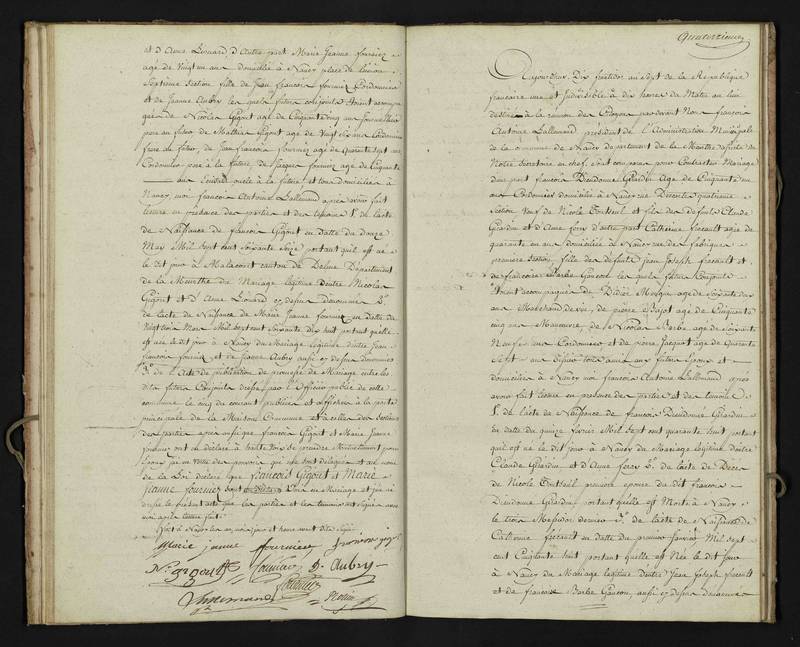 et d'Anne Liouard d'autre part Marie Jeanne fournier
agé de vingt un ans domiciliée à Nancy place de
Septieme Section fille de Jean francois fournier Cordonnier
et de Jeanne Aubry les quels futurs conjoints étoient accompa
gnés de Nicolas Gigout agé de Cinquante ans
pere au futur de Mathieu Gigout agé de vingt six ans Cordonnier
frere au futur, de Jean francois fournier agé de quarante sept ans
Cordonnier pere à la future de Jacques fournier agé de Cinquante
ans à la future et tous domiciliés à
Nancy moi francois Antoine Lallemand après avoir fait
lecture en présence des parties et des témoins 1° de l'acte
de Naissance de francois Gigout en datte du douze
May Mil Sept cent Soixante Seize portant qu'il est né
le dit jour à Malaucourt canton de Delme Département
de la Meurthe du Mariage légitime d'entre Nicolas
Gigout et d'Anne Liouard cy dessus dénommés 2°
de l'acte de Naissance de Marie Jeanne fournier en datte du
vingt six Mars Mil Sept cent Soixante dix huit portant qu'elle
est née le dit jour à Nancy du Mariage légitime d'entre Jean
francois fournier et de Jeanne Aubry aussi cy dessus dénommés
3° de l'acte de publication de promesse de Mariage entre les
dits futurs Conjoints dressé par l'Officier public de cette
commune le cinq du courant publiée et affichée à la porte
principale de la Maison Commune et à celles des Sections
des parties après aussi que francois Gigout et Marie Jeanne
fournier ont eu déclaré à haute voix se prendre Mutuellement pour
Epoux j'ai en vertu des pouvoirs qui me sont délégués et au nom
de la Loi déclaré que francois Gigout et Marie
Jeanne fournier sont unis en Mariage et j'ai
dressé le présent acte que les parties et les témoins ont signés avec
moi après lecture faite
Fait à Nancy les an, mois, jour et heure avant dits Signé
Marie jeanne fournier
N. gigout fournier J. Aubry
Lallemand
Quatorzieme
Aujourd'hui Dix fructidor an Sept de la République
francaise une et Indivisible à dix heures du Matin au lieu
destiné à la réunion des Citoyens pardevant Moi francois
Antoine Lallemand président de L'Administration Municipale
de la commune de Nancy département de la Meurthe assisté du
Notre Secrétaire en chef, sont comparus pour Contracter Mariage
d'une part francois Dieudonné Girardin agé de Cinquante un
ans Cordonnier domicilié à Nancy rue Descartes quatrieme
Section veuf de Nicole Toutseul et fils des defunts Claude
Girardin et d'Anne fery d'autre part Catherine ficeault agée de
quarante un ans domiciliée à Nancy rue des fabriques
premiere Section, fille des defunts jean Joseph ficeault et
de francoise Barbe Gancon les quels futurs Conjoints
étoient accompagnés de Didier Moysin agé de Soixante dix
ans Marchand de vin, de pierre Bajot agé de Cinquante
cinq ans Manœuvre, de Nicolas Barbe agé de Soixante
Neuf ans Cordonnier et de pierre Jacquot agé de Quarante
Sept ans tous amis aux futurs Epoux et
domiciliés à Nancy moi francois Antoine Lallemand après
avoir fait lecture en présence des parties et des témoins
1° de l'acte de Naissance de francois Dieudonné Girardin
en datte du quinze fevrier Mil Sept cent quarante huit portant
qu'il est né le dit jour à Nancy du Mariage légitime d'entre
Claude Girardin et d'Anne fery 2° de l'acte de Décès
de Nicole Toutseul premiere épouse du dit francois
Dieudonné Girardin portant qu'elle est Morte à Nancy
le trois Messidor dernier 3° de l'acte de Naissance de
Catherine ficeault en datte du premier Janvier Mil Sept
cent Cinquante huit portant qu'elle est Née le dit jour
à Nancy du Mariage légitime d'entre Jean Joseph ficeault
et de francoise Barbe Gancon, aussi cy dessus dénommés